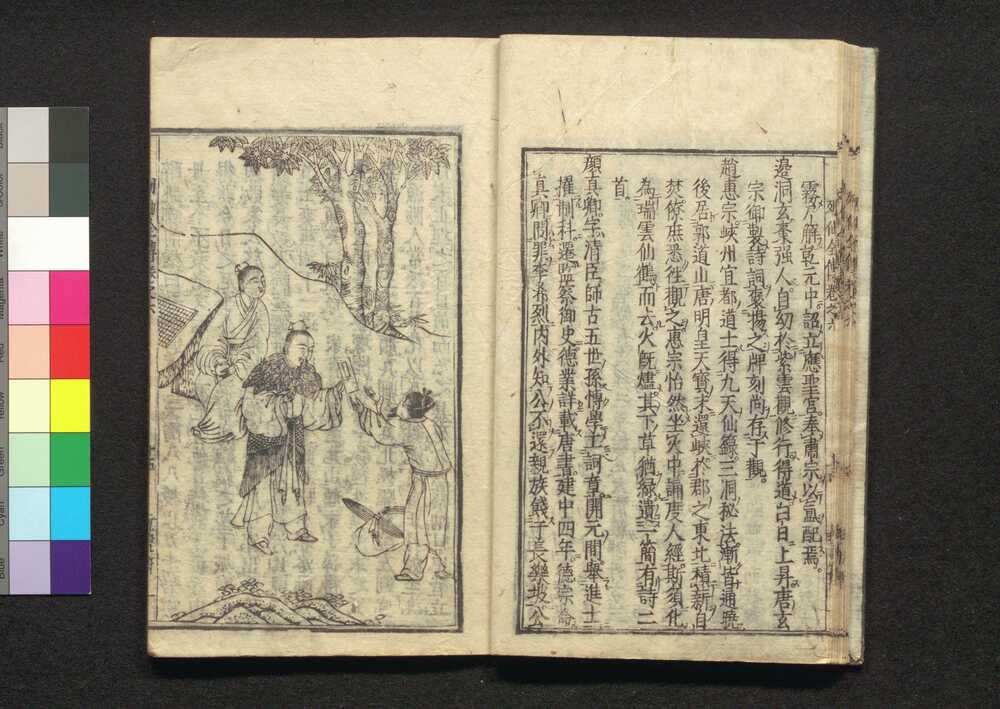 霧籜乾元中詔立應聖宮奉肅宗以盂配焉。
邊洞玄棗强人自幼於紫雲觀修行得道白日上昇唐玄
宗御製詩詞褒揚之碑刻尚存于觀。
趙惠宗峽州宜都道士得九天仙籙三洞秘法漸皆通曉
後居郭道山唐明皇天寶末還峽於郡之東北積薪自
焚僚庶悉徃觀之惠宗怡然坐火中誦度人經斯須化
為瑞雲仙鶴而去火既燼其下草猶緑遺二簡有詩二
首。
顔真卿字清臣師古五世孫博學工詞章開元間舉進士
擢制科遷監察御史德業詳載唐書建中四年德宗命
真卿問罪李希烈内外知公不還親族餞于長樂坡公